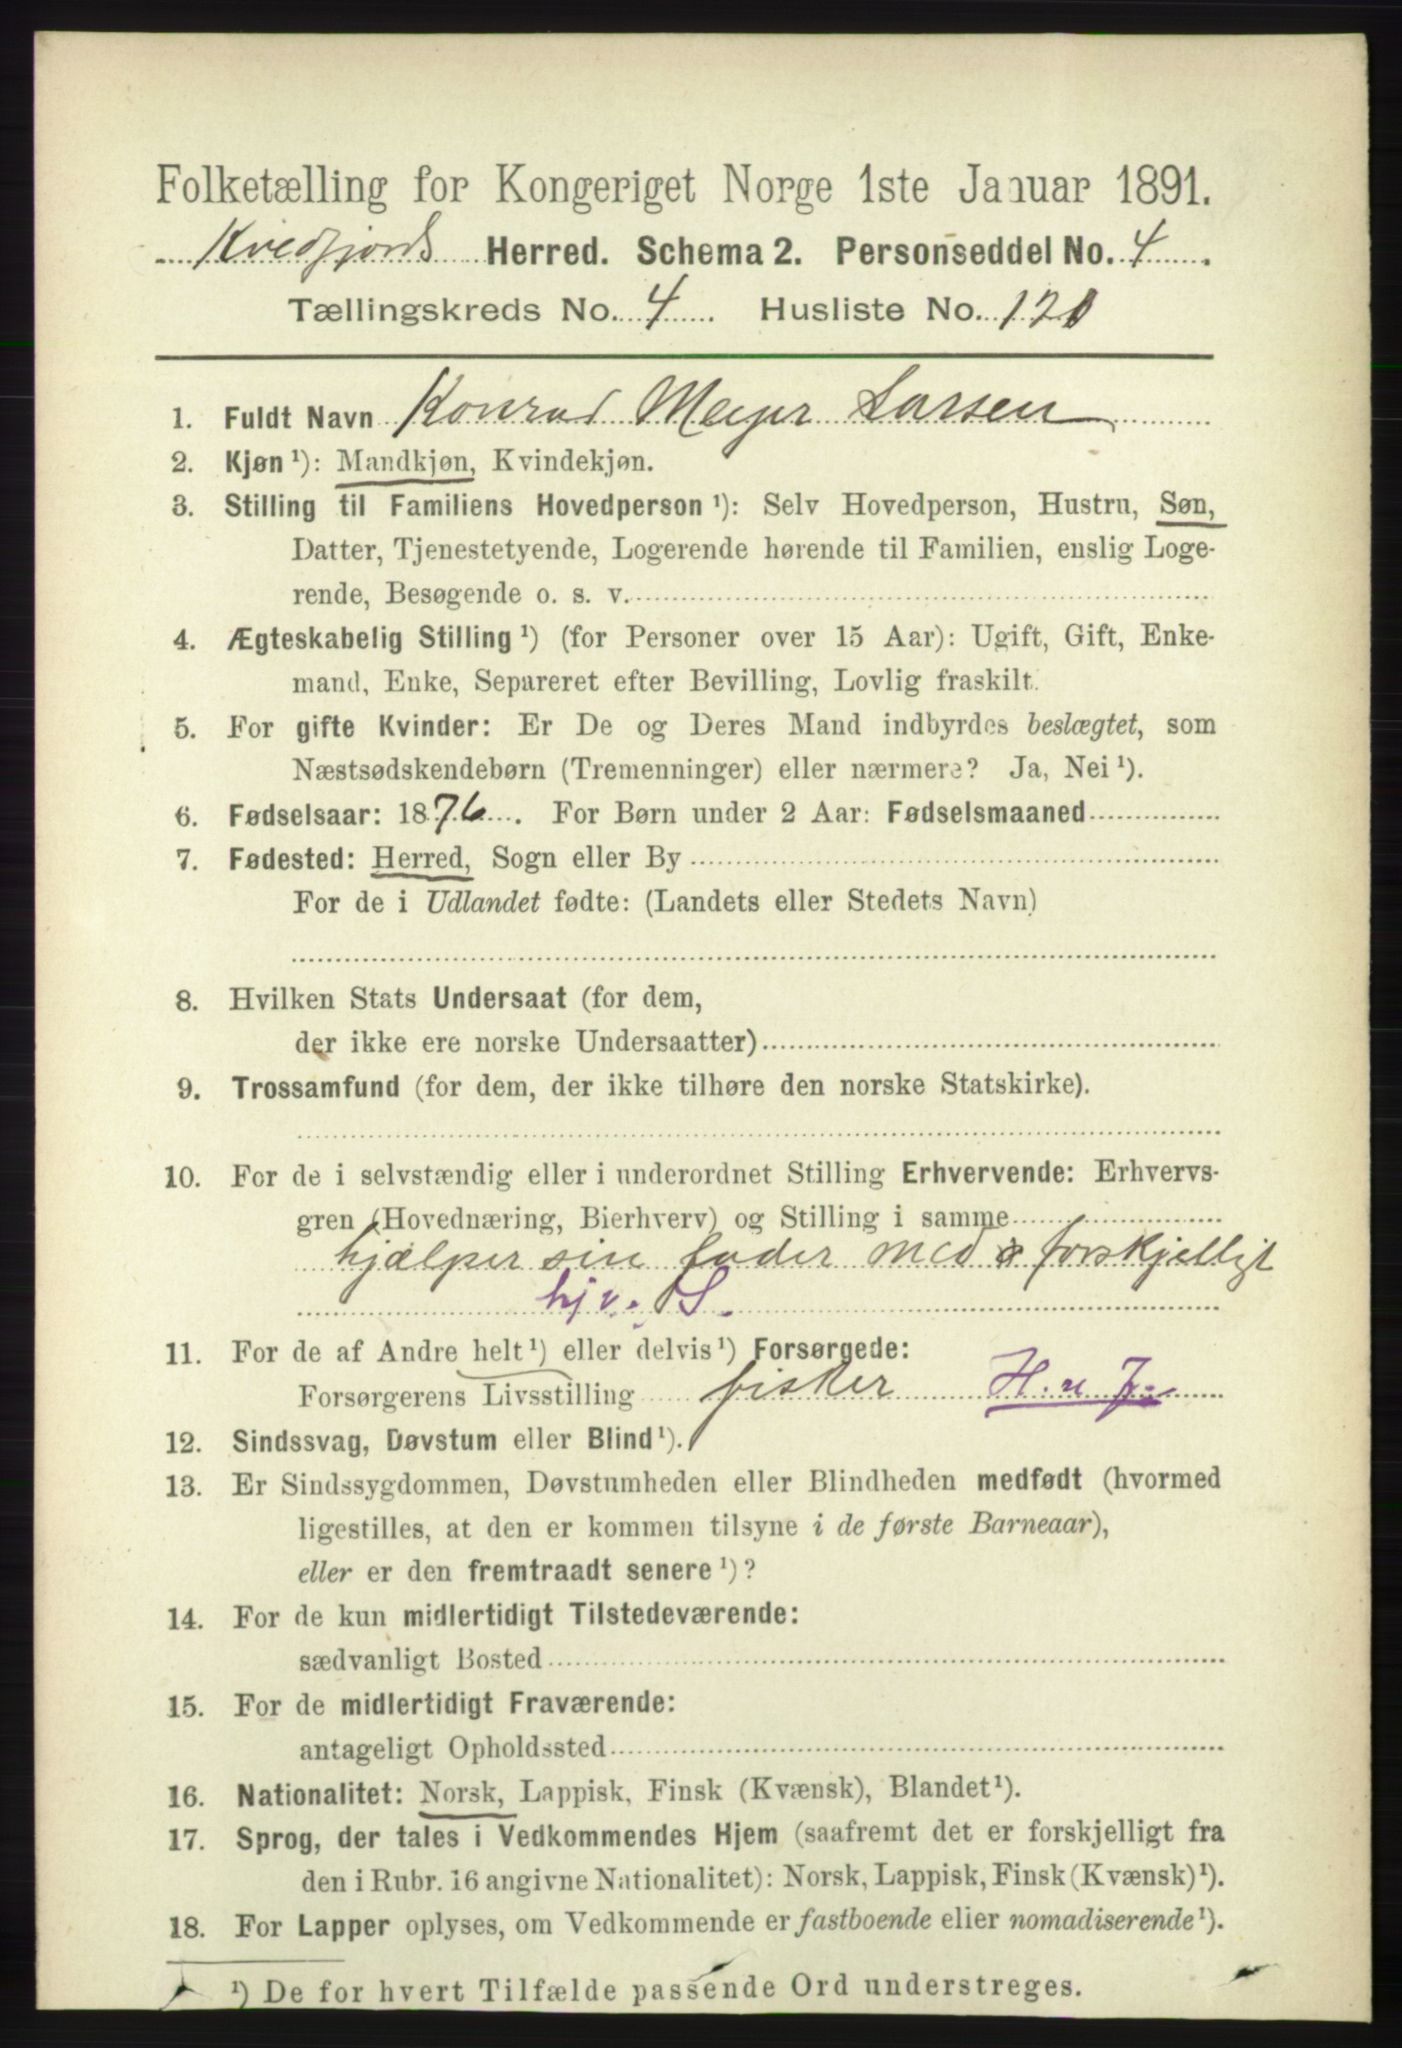 Folketælling for Kongeriget Norge 1ste Januar 1891.
Kvedfjords Herred. Schema 2. Personseddel No. 4
Tællingskreds No. 4 Husliste No. 120
1. Fuldt Navn Konrad Meyer Larsen
2. Kjøn ¹): Mandkjøn, Kvindekjøn.
3. Stilling til Familiens Hovedperson ¹): Selv Hovedperson, Hustru, Søn,
Datter, Tjenestetyende, Logerende hørende til Familien, enslig Loge-
rende, Besøgende o. s. v.
4. Ægteskabelig Stilling ¹) (for Personer over 15 Aar): Ugift, Gift, Enke-
mand, Enke, Separeret efter Bevilling, Lovlig fraskilt.
5. For gifte Kvinder: Er De og Deres Mand indbyrdes beslægtet, som
Næstsødskendebørn (Tremenninger) eller nærmere? Ja, Nei ¹).
6. Fødselsaar: 1876. For Børn under 2 Aar: Fødselsmaaned
7. Fødested: Herred, Sogn eller By
For de i Udlandet fødte: (Landets eller Stedets Navn)
8. Hvilken Stats Undersaat (for dem,
der ikke ere norske Undersaatter)
9. Trossamfund (for dem, der ikke tilhøre den norske Statskirke).
10. For de i selvstændig eller i underordnet Stilling Erhvervende: Erhvervs-
gren (Hovednæring, Bierhverv) og Stilling i samme
hjælper sin fader med forskjelligt
hjv. S.
11. For de af Andre helt ¹) eller delvis ¹) Forsørgede:
Forsørgerens Livsstilling fisker H. u J.
12. Sindssvag, Døvstum eller Blind ¹).
13. Er Sindssygdommen, Døvstumheden eller Blindheden medfødt (hvormed
ligestilles, at den er kommen tilsyne i de første Barneaar),
eller er den fremtraadt senere ¹)?
14. For de kun midlertidigt Tilstedeværende:
sædvanligt Bosted
15. For de midlertidigt Fraværende:
antageligt Opholdssted
16. Nationalitet: Norsk, Lappisk, Finsk (Kvænsk), Blandet ¹).
17. Sprog, der tales i Vedkommendes Hjem (saafremt det er forskjelligt fra
den i Rubr. 16 angivne Nationalitet): Norsk, Lappisk, Finsk (Kvænsk) ¹).
18. For Lapper oplyses, om Vedkommende er fastboende eller nomadiserende ¹).
¹) De for hvert Tilfælde passende Ord understreges.